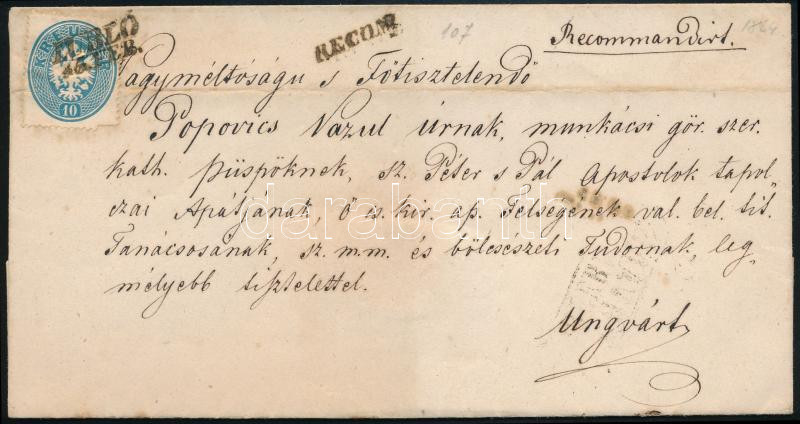 107
1864
RECOM.
Recommandirt.
KREUZER
10
Nagyméltóságu s Főtisztelendő
Popovics Vazul úrnak, munkácsi gör. szer.
kath. Püspöknek, sz. Péter s Pál Apostolok tapol„
czai Apátjának, Ő cs. kir. ap. Felségének val. bel. tit.
Tanácsosának, sz. m. m. és bölcseszeti Tudornak, leg„
mélyebb tisztelettel.
Ungvárt
darabanth